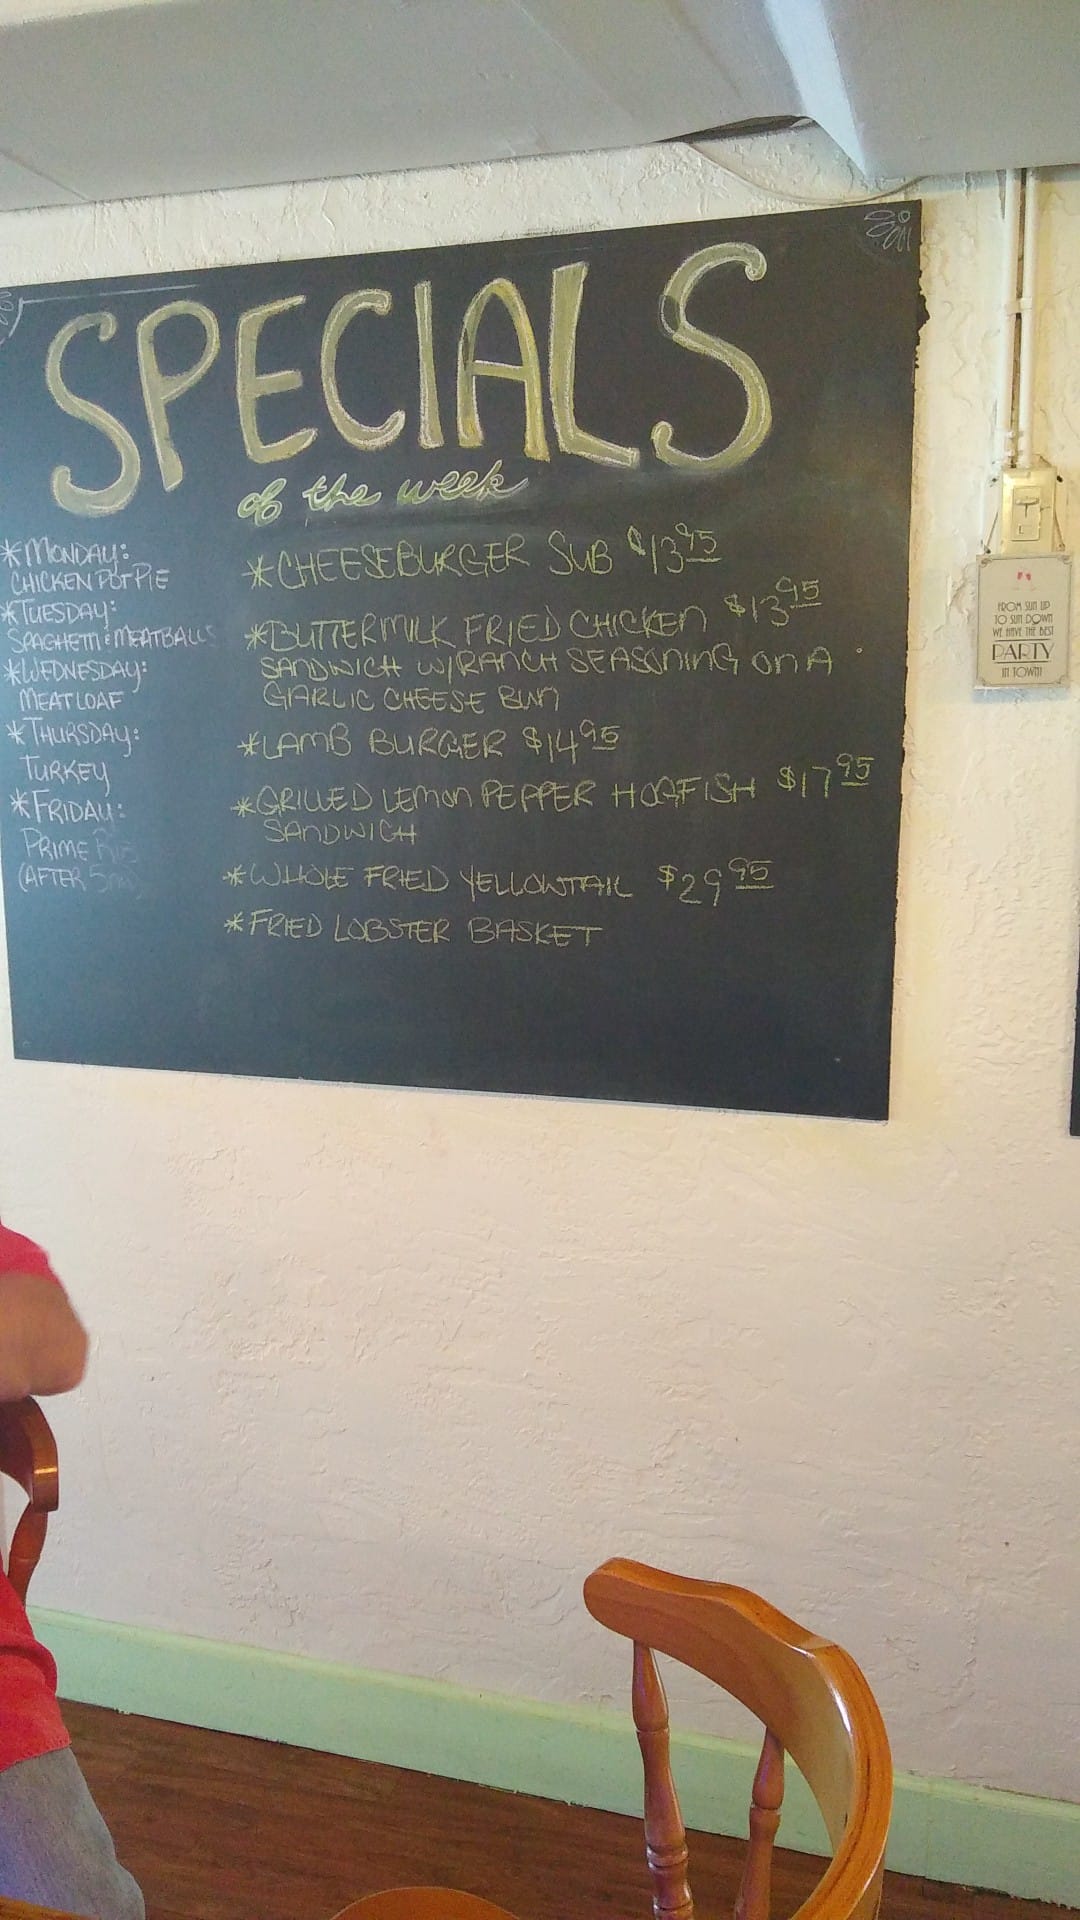 SPECIALS
of the week
*MONDAY:
CHICKEN POT PIE
*TUESDAY:
SPAGHETTI & MEATBALLS
*WEDNESDAY:
MEATLOAF
*THURSDAY:
TURKEY
*FRIDAY:
PRIME RIB
(AFTER 5PM)
*CHEESEBURGER SUB $13.95
*BUTTERMILK FRIED CHICKEN $13.95
SANDWICH W/RANCH SEASONING ON A
GARLIC CHEESE BUN
*LAMB BURGER $14.95
*GRILLED LEMON PEPPER HOGFISH $17.95
SANDWICH
*WHOLE FRIED YELLOWTAIL $29.95
*FRIED LOBSTER BASKET
FROM SUN UP
TO SUN DOWN
WE HAVE THE BEST
PARTY
IN TOWN!